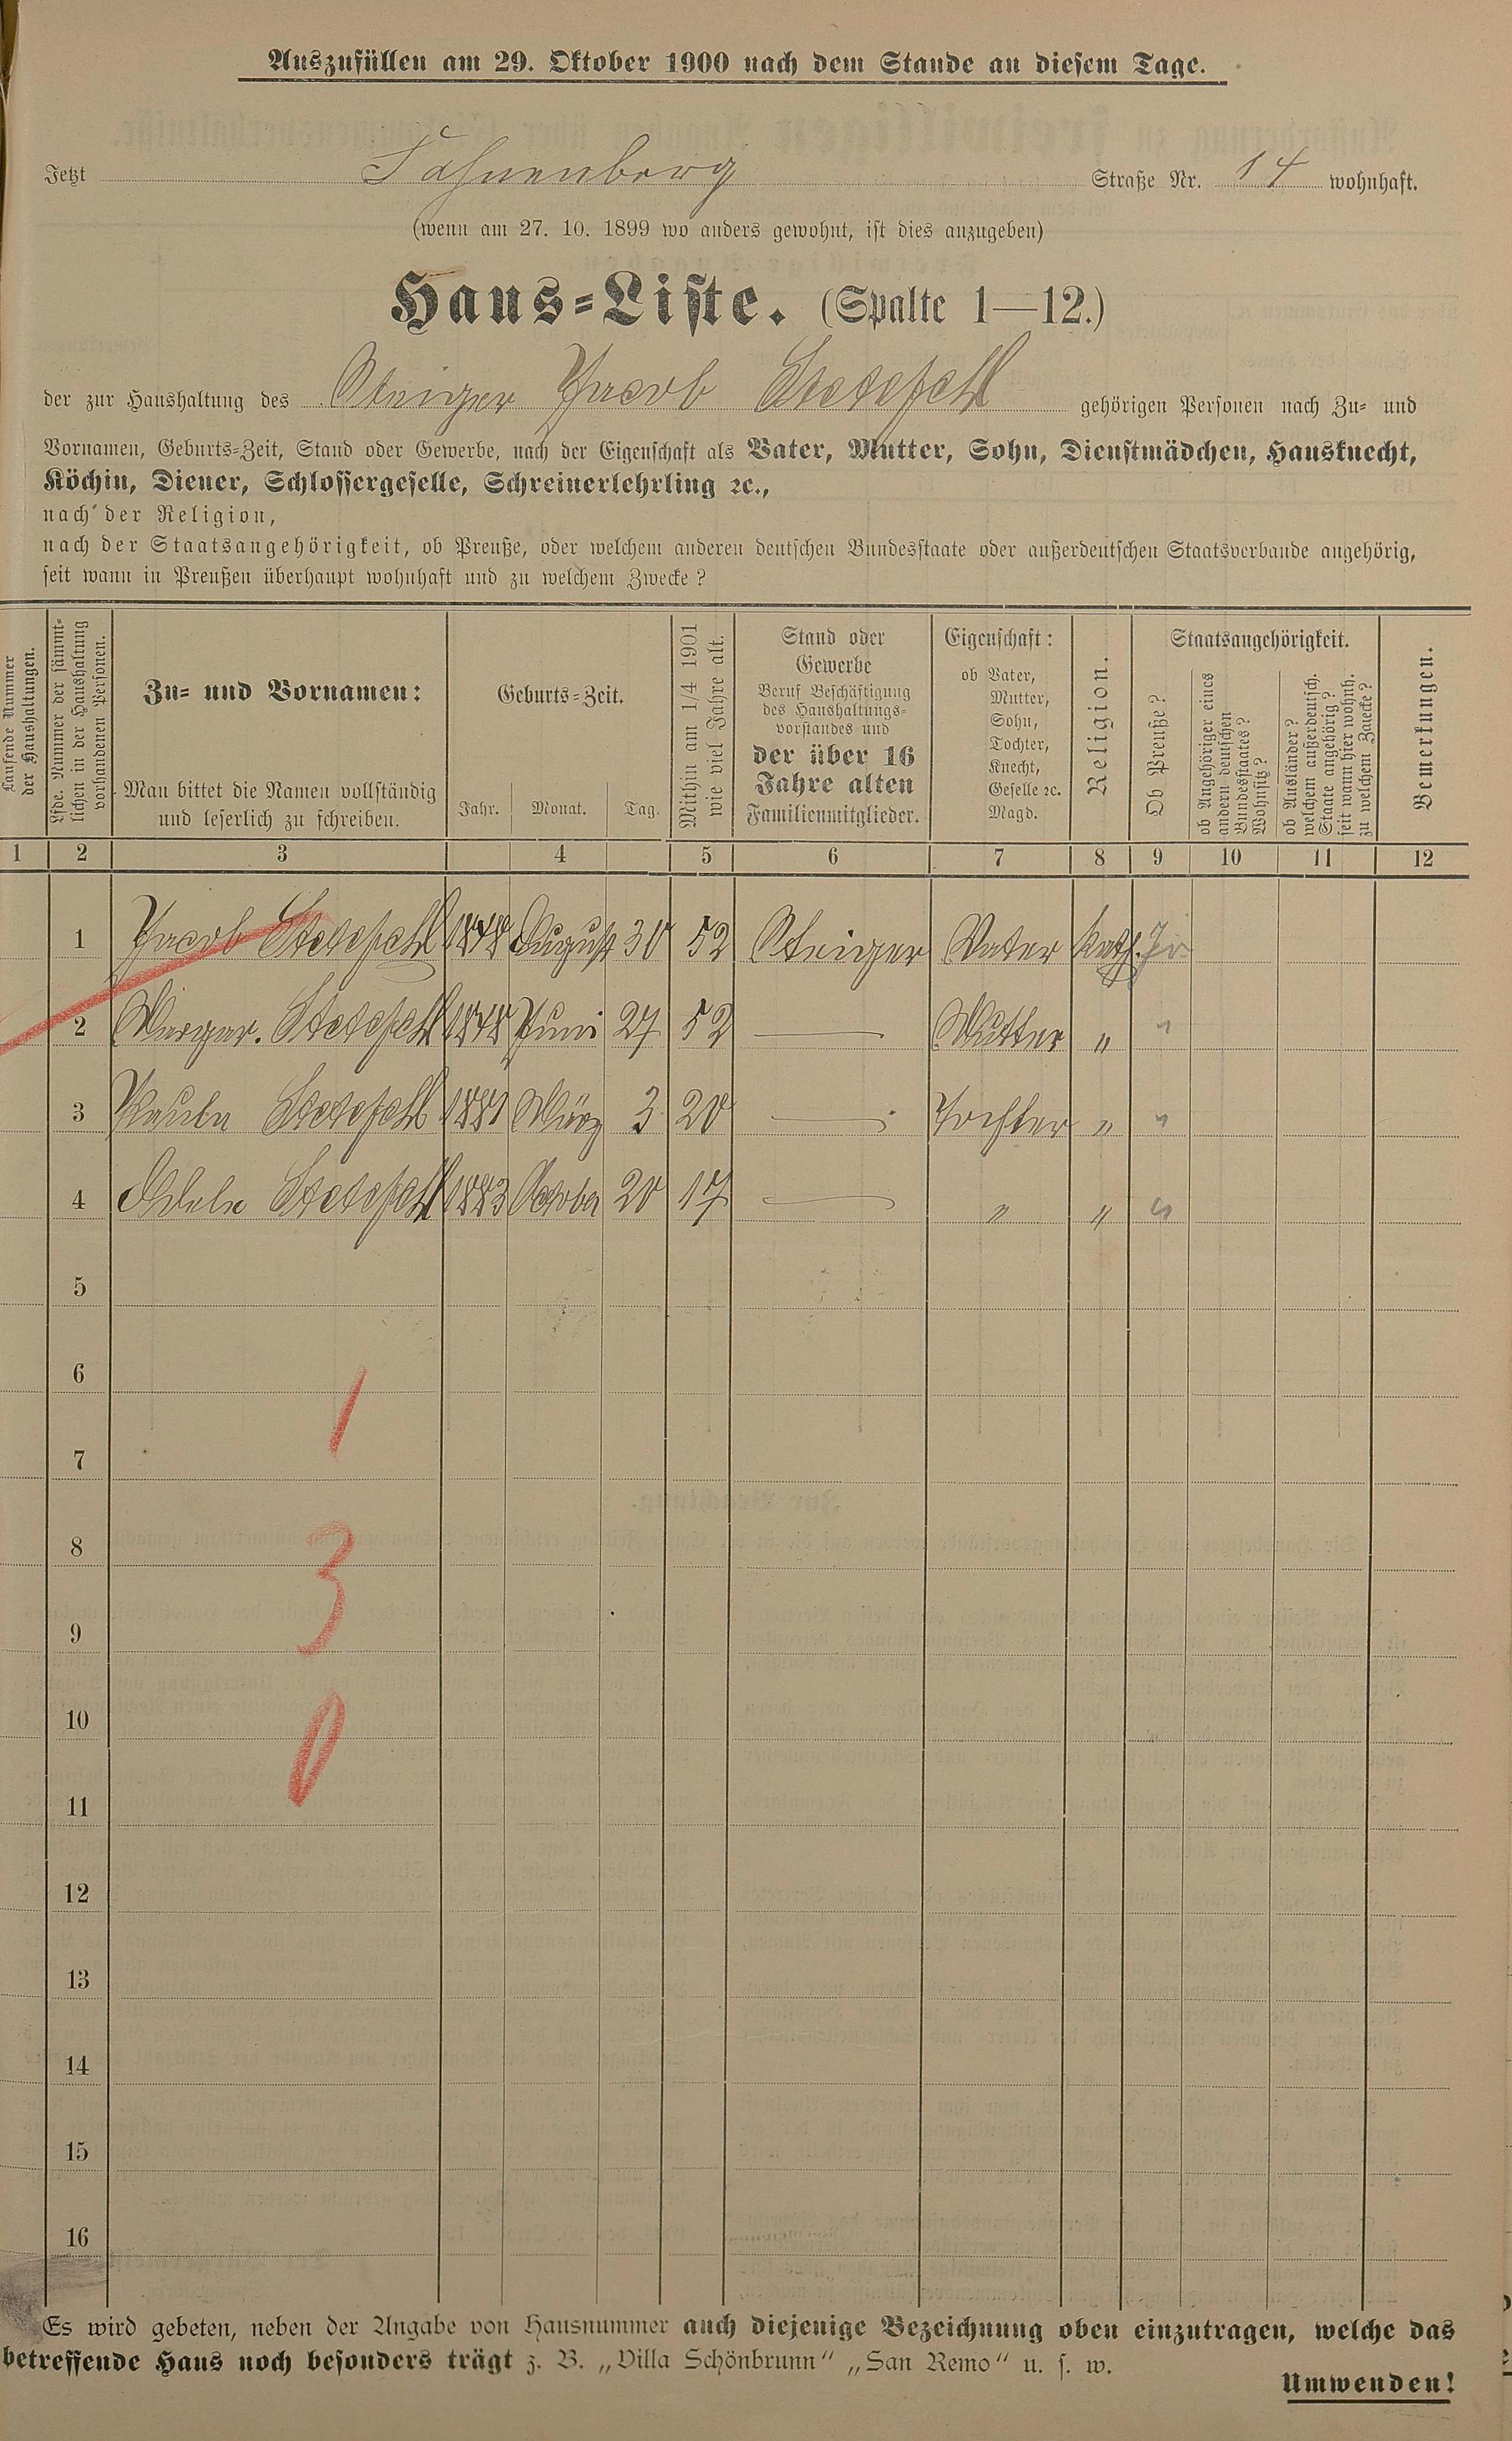 Auszufüllen am 29. Oktober 1900 nach dem Stande an diesem Tage.
Jetzt Straße Nr. 14 wohnhaft.
(wenn am 27. 10. 1899 wo anders gewohnt, ist dies anzugeben)
Haus-Liste. (Spalte 1—12.)
der zur Haushaltung des Steiger Jacob gehörigen Personen nach Zu- und
Vornamen, Geburts-Zeit, Stand oder Gewerbe, nach der Eigenschaft als Vater, Mutter, Sohn, Dienstmädchen, Hausknecht,
Köchin, Diener, Schlossergeselle, Schreinerlehrling ꝛc.,
nach der Religion,
nach der Staatsangehörigkeit, ob Preuße, oder welchem anderen deutschen Bundesstaate oder außerdeutschen Staatsverbande angehörig,
seit wann in Preußen überhaupt wohnhaft und zu welchem Zwecke?
Laufende Nummer
der Haushaltungen.
Lfde. Nummer der sämmt-
lichen in der Haushaltung
vorhandenen Personen.
Zu- und Vornamen:
Man bittet die Namen vollständig
und leserlich zu schreiben.
Geburts-Zeit.
Jahr. Monat. Tag.
Mithin am 1/4 1901
wie viel Jahre alt.
Stand oder
Gewerbe
Beruf Beschäftigung
des Haushaltungs-
vorstandes und
der über 16
Jahre alten
Familienmitglieder.
Eigenschaft:
ob Vater,
Mutter,
Sohn,
Tochter,
Knecht,
Geselle ꝛc.
Magd.
Religion.
Staatsangehörigkeit.
Ob Preuße?
ob Angehöriger eines
andern deutschen
Bundesstaates?
Wohnsitz?
ob Ausländer?
welchem außerdeutsch.
Staate angehörig?
seit wann hier wohnh.
zu welchem Zwecke?
Bemerkungen.
1 2 3 4 5 6 7 8 9 10 11 12
1 Jacob 1848 August 30 52 Steiger Vater kath.
2 Margar. 1848 Juni 27 52 — Mutter " "
3 Paula 1881 März 3 20 — Tochter " "
4 Adele 1883 October 20 17 — " " "
5
6
1
7
8
3
9
10
0
11
12
13
14
15
16
Es wird gebeten, neben der Angabe von Hausnummer auch diejenige Bezeichnung oben einzutragen, welche das
betreffende Haus noch besonders trägt z. B. „Villa Schönbrunn" „San Remo" u. s. w.
Umwenden!